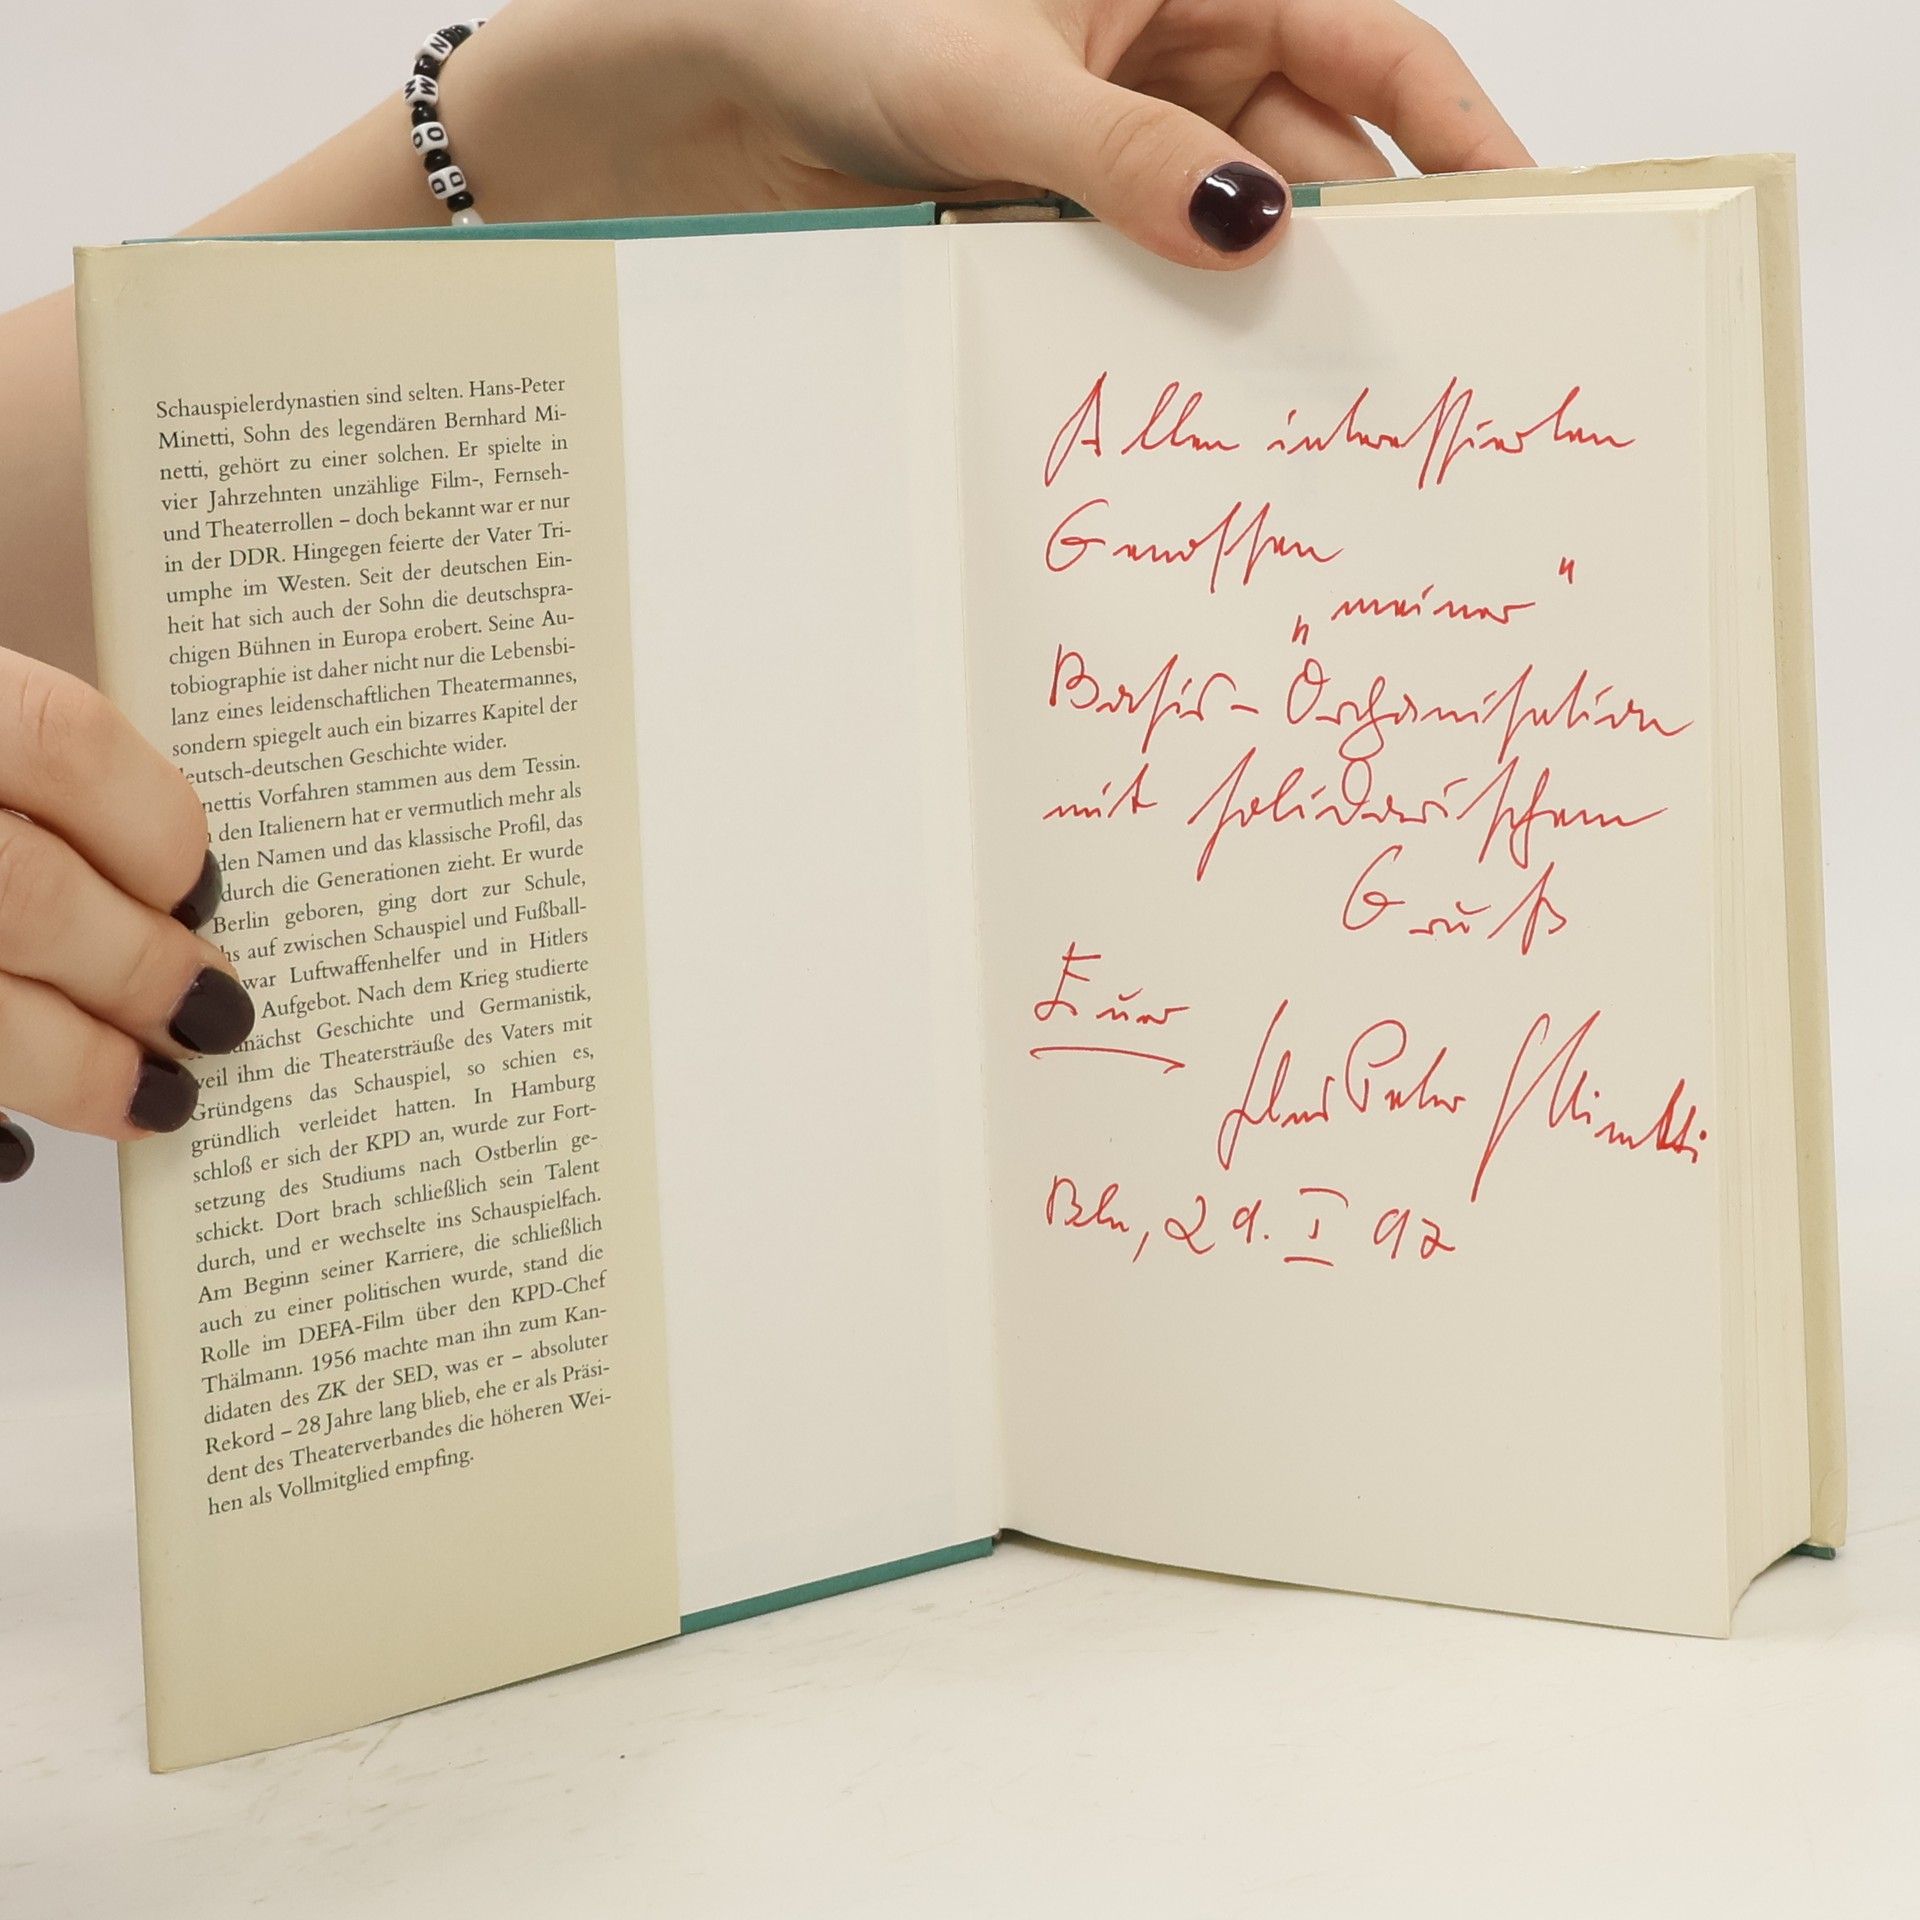 Schauspielerdynastien sind selten. Hans-Peter
Minetti, Sohn des legendären Bernhard Mi-
netti, gehört zu einer solchen. Er spielte in
vier Jahrzehnten unzählige Film-, Fernseh-
und Theaterrollen – doch bekannt war er nur
in der DDR. Hingegen feierte der Vater Tri-
umphe im Westen. Seit der deutschen Ein-
heit hat sich auch der Sohn die deutschspra-
chigen Bühnen in Europa erobert. Seine Au-
tobiographie ist daher nicht nur die Lebensbi-
lanz eines leidenschaftlichen Theatermannes,
sondern spiegelt auch ein bizarres Kapitel der
eutsch-deutschen Geschichte wider.
nettis Vorfahren stammen aus dem Tessin.
den Italienern hat er vermutlich mehr als
den Namen und das klassische Profil, das
durch die Generationen zieht. Er wurde
Berlin geboren, ging dort zur Schule,
hs auf zwischen Schauspiel und Fußball-
war Luftwaffenhelfer und in Hitlers
Aufgebot. Nach dem Krieg studierte
nächst Geschichte und Germanistik,
weil ihm die Theatersträuße des Vaters mit
Gründgens das Schauspiel, so schien es,
gründlich verleidet hatten. In Hamburg
schloß er sich der KPD an, wurde zur Fort-
setzung des Studiums nach Ostberlin ge-
schickt. Dort brach schließlich sein Talent
durch, und er wechselte ins Schauspielfach.
Am Beginn seiner Karriere, die schließlich
auch zu einer politischen wurde, stand die
Rolle im DEFA-Film über den KPD-Chef
Thälmann. 1956 machte man ihn zum Kan-
didaten des ZK der SED, was er – absoluter
Rekord – 28 Jahre lang blieb, ehe er als Präsi-
dent des Theaterverbandes die höheren Wei-
hen als Vollmitglied empfing.
Allen interessierten
Genossen
„meiner"
Basis-Organisation
mit solidarischem
Gruß
Euer
Hans Peter Minetti
Bln, 29. I 97